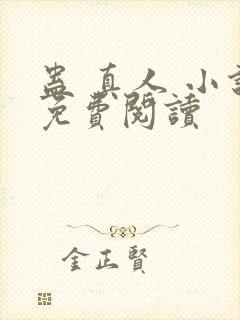 蛊真人 小説
免費閱讀
金正賢